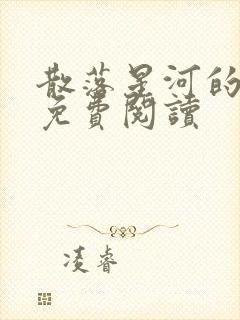 散落星河的
免費閱讀
凌睿